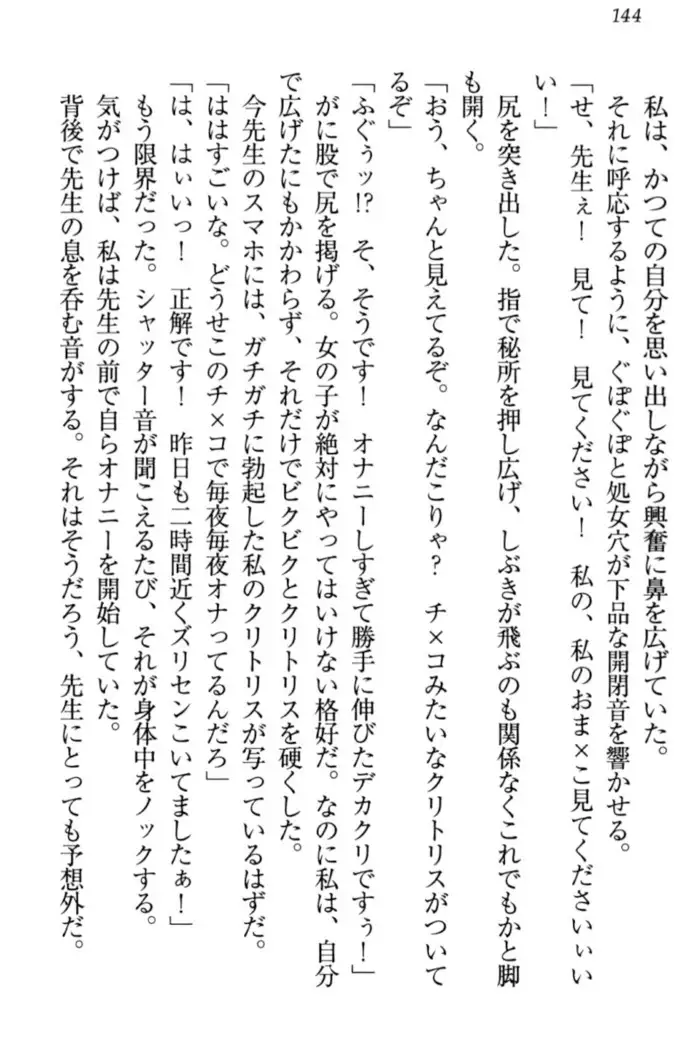 144
私は、かつての自分を思い出しながら興奮に鼻を広げていた。
それに呼応するように、ぐぽぐぽと処女穴が下品な開閉音を響かせる。
「せ、先生ぇ！　見て！　見てください！　私の、私のおま×こ見てくださいぃい
い！」
尻を突き出した。指で秘所を押し広げ、しぶきが飛ぶのも関係なくこれでもかと脚
も開く。
「おう、ちゃんと見えてるぞ。なんだこりゃ？　チ×コみたいなクリトリスがついて
るぞ」
「ふぐぅッ!?　そ、そうです！　オナニーしすぎて勝手に伸びたデカクリですぅ！」
がに股で尻を掲げる。女の子が絶対にやってはいけない格好だ。なのに私は、自分
で広げたにもかかわらず、それだけでビクビクとクリトリスを硬くした。
今先生のスマホには、ガチガチに勃起した私のクリトリスが写っているはずだ。
「ははすごいな。どうせこのチ×コで毎夜毎夜オナってるんだろ」
「は、はぃいっ！　正解です！　昨日も二時間近くズリセンこいてましたぁ！」
もう限界だった。シャッター音が聞こえるたび、それが身体中をノックする。
気がつけば、私は先生の前で自らオナニーを開始していた。
背後で先生の息を呑む音がする。それはそうだろう、先生にとっても予想外だ。